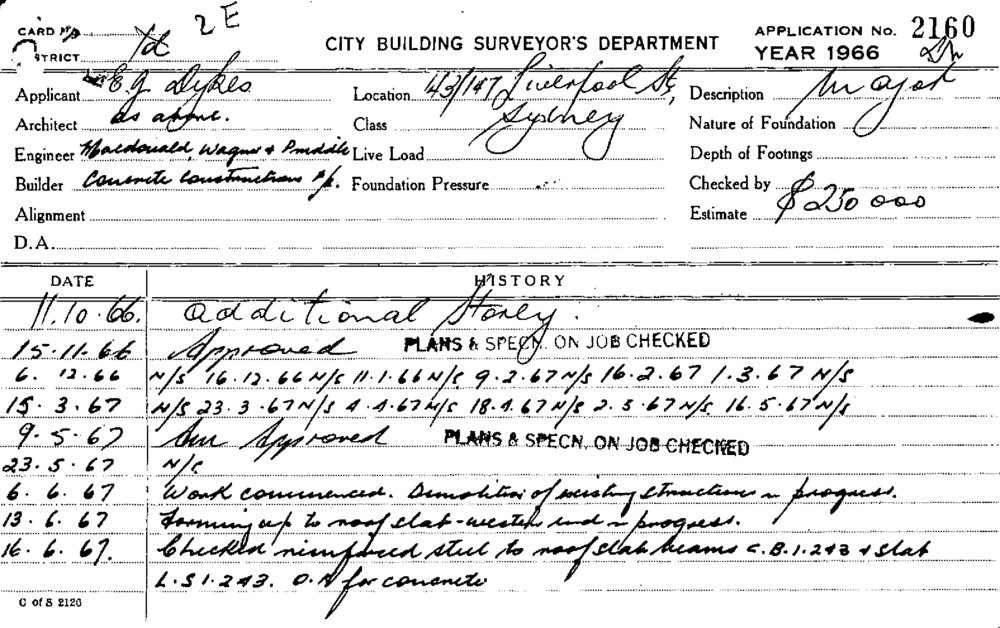 CARD No. 2E
DISTRICT 1d
CITY BUILDING SURVEYOR'S DEPARTMENT
APPLICATION No. 2160
YEAR 1966
Applicant E. J. Dykes
Location 143/147 Liverpool St, Sydney
Description Major
Architect as above.
Class
Nature of Foundation
Engineer Macdonald, Wagner & Priddle
Live Load
Depth of Footings
Builder Concrete Constructions P/L.
Foundation Pressure
Checked by
Alignment
Estimate $250 000
D.A.
DATE HISTORY
11.10.66. additional Storey.
15.11.66 Approved PLANS & SPECN. ON JOB CHECKED
6.12.66 N/S 16.12.66 N/S 11.1.66 N/S 9.2.67 N/S 16.2.67 1.3.67 N/S
15.3.67 N/S 23.3.67 N/S 4.4.67 N/S 18.4.67 N/S 2.5.67 N/S 16.5.67 N/S
9.5.67 Am Approved PLANS & SPECN. ON JOB CHECKED
23.5.67 N/S
6.6.67 Work commenced. Demolition of existing structures in progress.
13.6.67 Forming up to roof slab - western end in progress.
16.6.67. Checked reinforced steel to roof slab beams C.B.1.2&3 & slab
L.S 1.2&3. O.K for concrete
C of S 2120